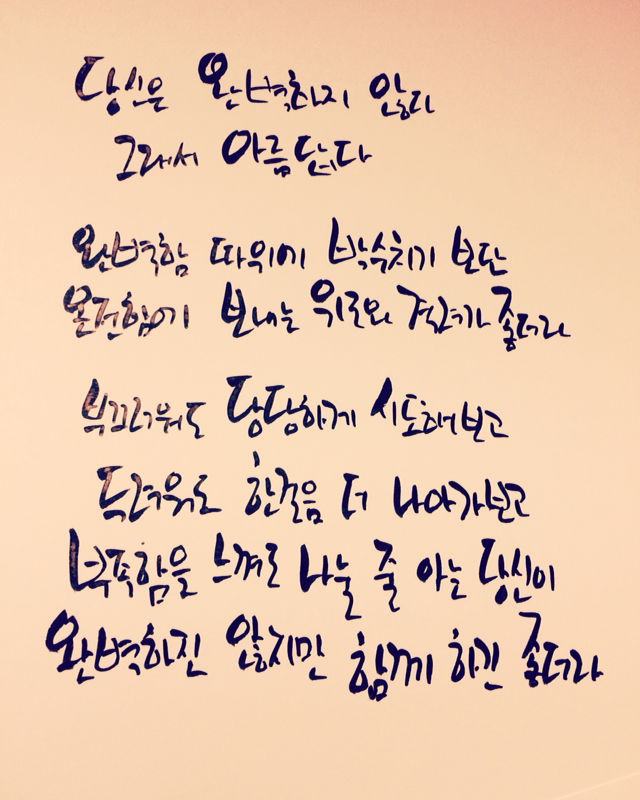 당신은 완벽하지 않다
그래서 아름답다
완벽함 따위에 박수치기 보단
온전함에 보내는 위로와 격려가 좋더라
부끄러워도 당당하게 시도해보고
두려워도 한걸음 더 나아가보고
부족함을 느껴도 나눌 줄 아는 당신이
완벽하진 않지만 함께 하긴 좋더라